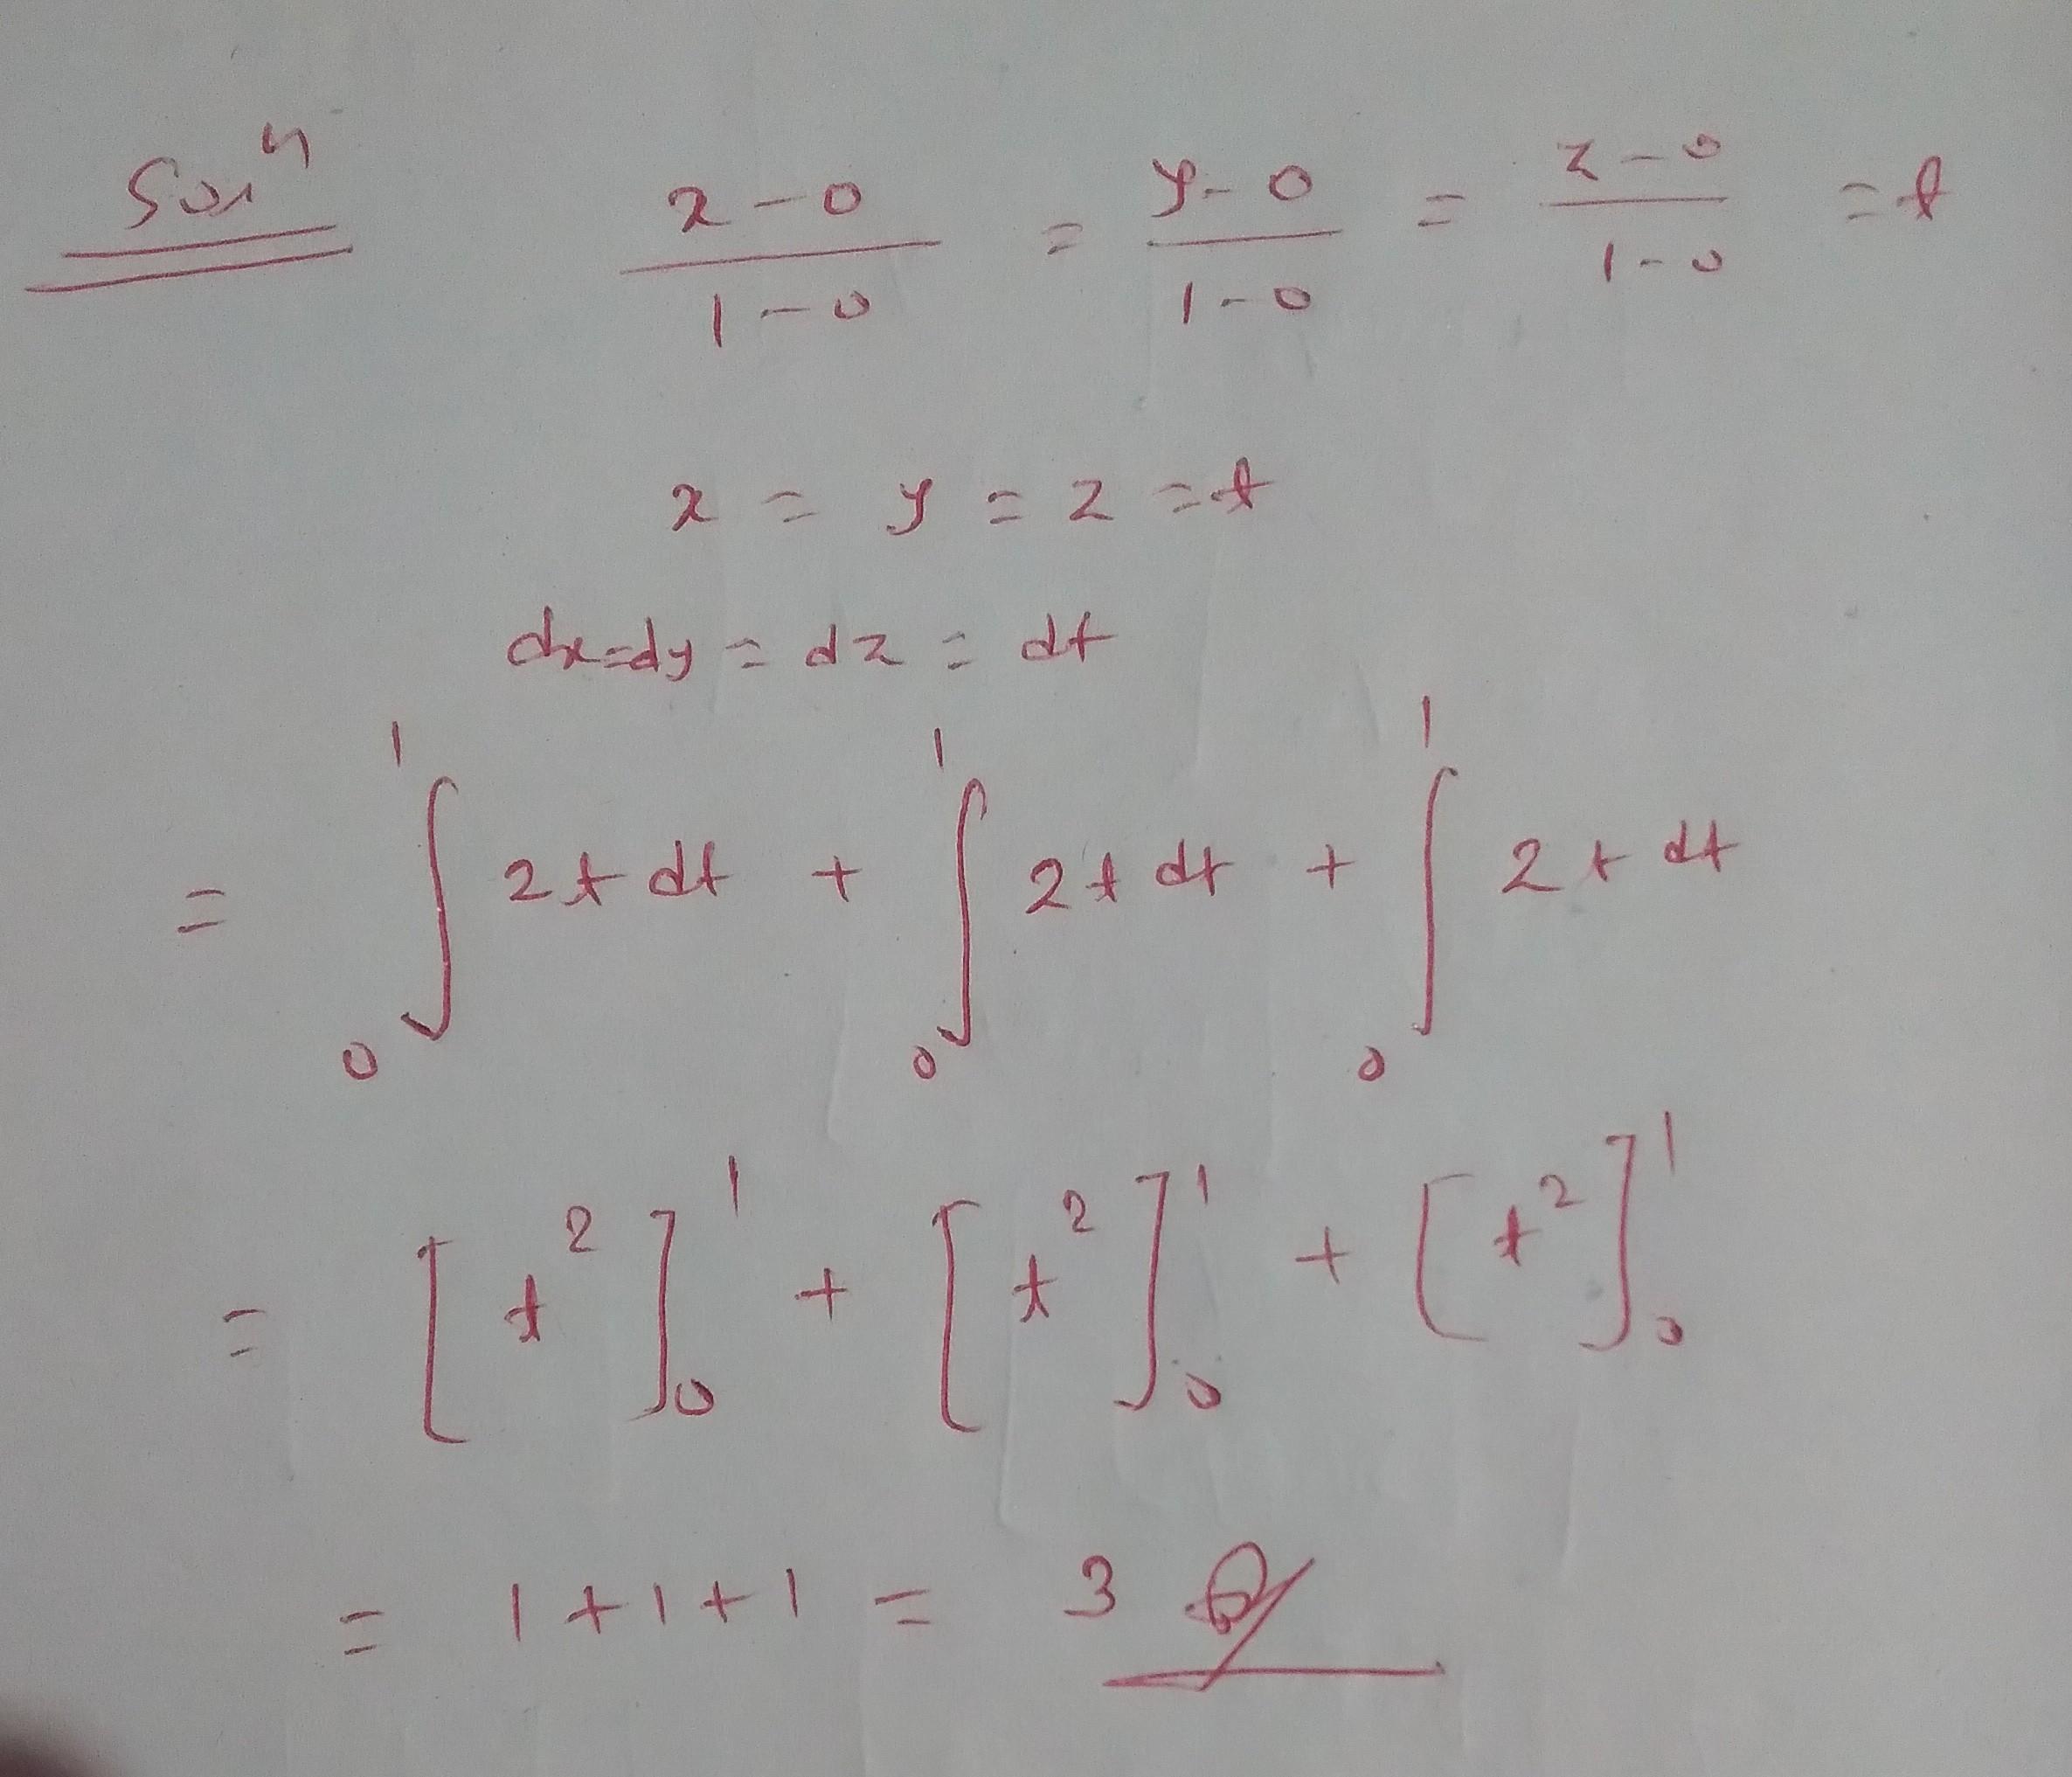 Sol^n (x-0)/(1-0) = (y-0)/(1-0) = (z-0)/(1-0) = t
x = y = z = t
dx=dy = dz = dt
= ∫_0^1 2t dt + ∫_0^1 2t dt + ∫_0^1 2t dt
= [t^2]_0^1 + [t^2]_0^1 + [t^2]_0^1
= 1+1+1 = 3